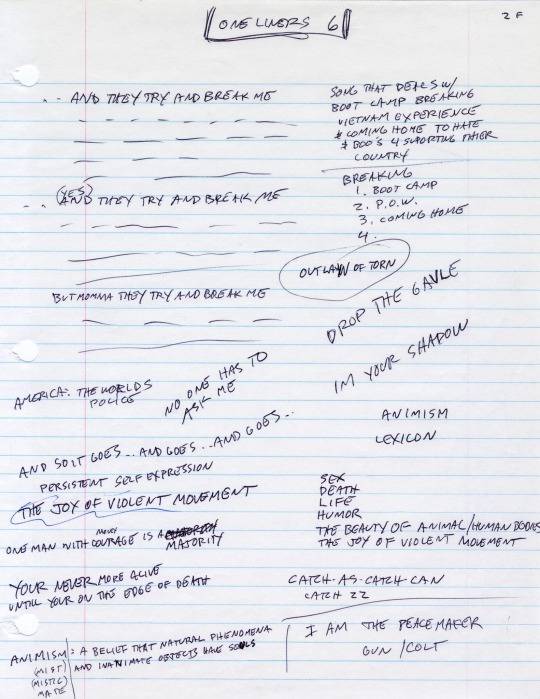 ONE LINERS 6
2 F
.. AND THEY TRY AND BREAK ME
(YES)
.. AND THEY TRY AND BREAK ME
BUT MOMMA THEY TRY AND BREAK ME
SONG THAT DEALS W/
BOOT CAMP BREAKING
VIETNAM EXPERIENCE
& COMING HOME TO HATE
& BOO'S 4 SUPORTING THIER
COUNTRY
BREAKING
1. BOOT CAMP
2. P.O.W.
3. COMING HOME
4.
OUTLAW OF TORN
DROP THE GAVLE
IM YOUR SHADOW
AMERICA: THE WORLDS
POLICE
NO ONE HAS TO
ASK ME
ANIMISM
LEXICON
AND SO IT GOES... AND GOES... AND GOES...
PERSISTENT SELF EXPRESSION
THE JOY OF VIOLENT MOVEMENT
SEX
DEATH
LIFE
HUMOR
THE BEAUTY OF ANIMAL/HUMAN BODIES
THE JOY OF VIOLENT MOVEMENT
MONEY
ONE MAN WITH COURAGE IS A
MAJORITY
YOUR NEVER MORE ALIVE
UNTIL YOUR ON THE EDGE OF DEATH
CATCH-AS-CATCH CAN
CATCH 22
ANIMISM: A BELIEF THAT NATURAL PHENOMENA
(MIST) AND INANIMATE OBJECTS HAVE SOULS
(MISTIC)
MATE
I AM THE PEACEMAKER
GUN/COLT